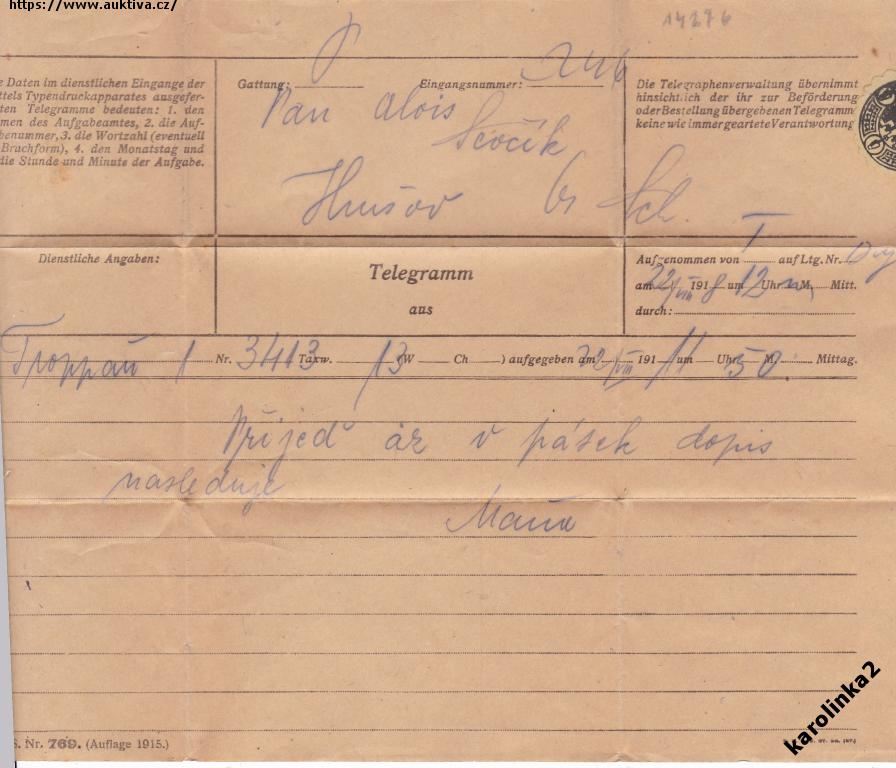 https://www.auktiva.cz/
14276
e Daten im dienstlichen Eingange der
ttels Typendruckapparates ausgefer-
ten Telegramme bedeuten: 1. den
men des Aufgabeamtes, 2. die Auf-
benummer, 3. die Wortzahl (eventuell
Bruchform), 4. den Monatstag und
die Stunde und Minute der Aufgabe.
Gattung: Eingangsnummer:
Pan Alois
Hrušov
Sch.
Die Telegraphenverwaltung übernimmt
hinsichtlich der ihr zur Beförderung
oder Bestellung übergebenen Telegramme
keine wie immer geartete Verantwortung
Dienstliche Angaben:
Telegramm
aus
Aufgenommen von T auf Ltg. Nr.
am 22/VIII 1918 um 12 Uhr M. Mitt.
durch:
Troppau 1 Nr. 3413 Taxw. 13 (W Ch ) aufgegeben am 22/VIII 191 um 11 Uhr 50 M. Mittag.
Přijeď až v pátek dopis
nasleduje
Maňa
S. Nr. 769. (Auflage 1915.)
karolinka2